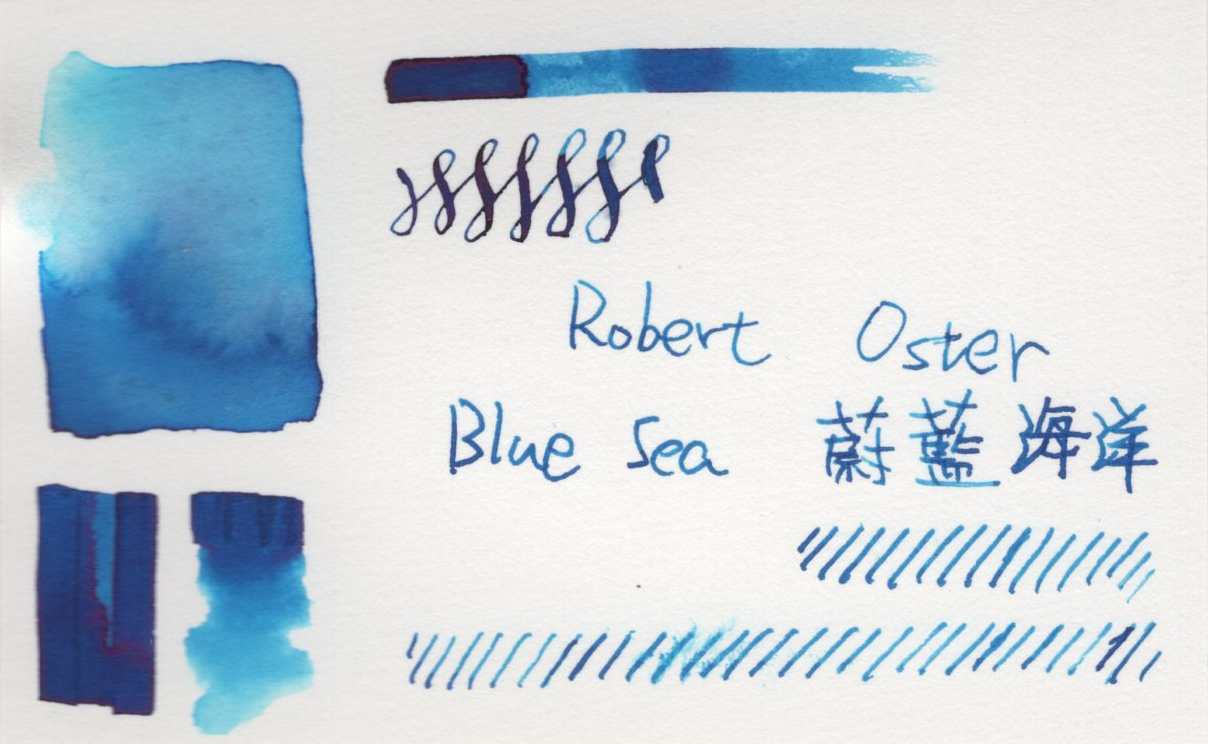 Robert Oster
Blue Sea 蔚藍海洋